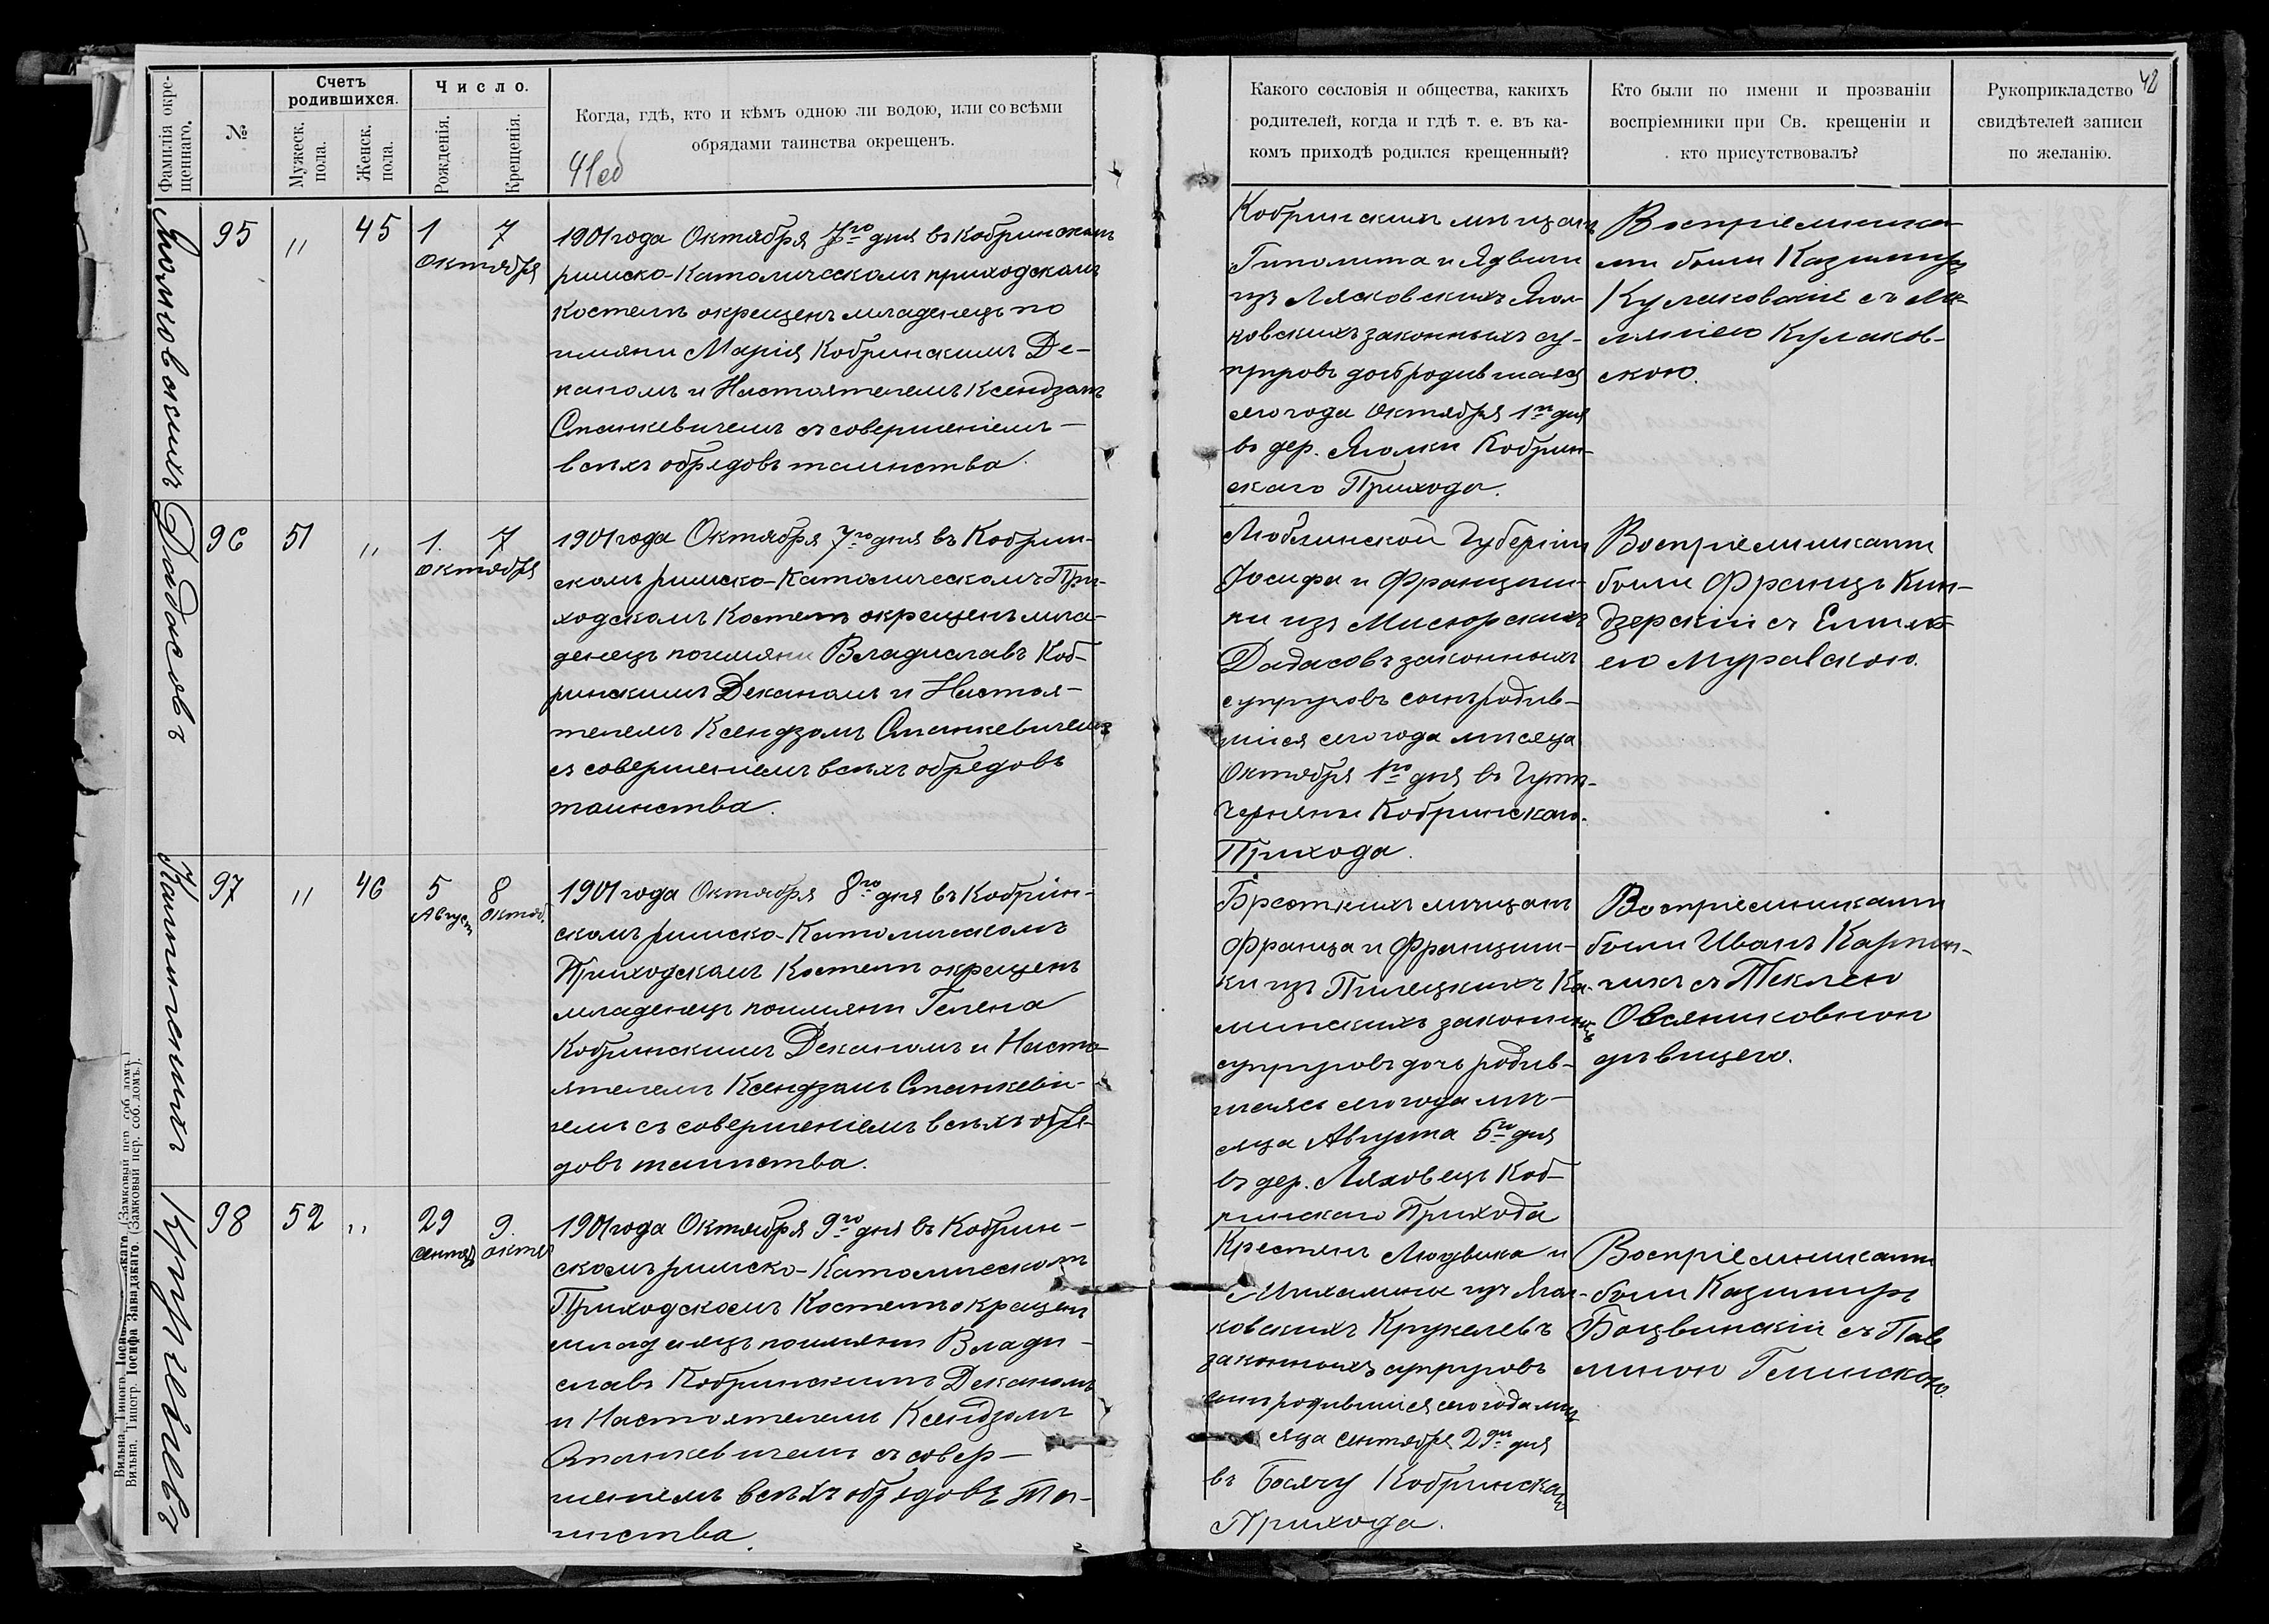 Фамилія окрещеннаго.
№
Счетъ родившихся.
Мужеск. пола.
Женск. пола.
Число.
Рожденія.
Крещенія.
Когда, гдѣ, кто и кѣмъ одною ли водою, или со всѣми
обрядами таинства окрещенъ.
41об
95
"
45
1
7
Октября
1901 года Октября 7го дня въ Кобринскомъ
римско-Католическомъ приходскомъ
Костелѣ окрещенъ младенецъ по
имяни Марія Кобринскимъ Де-
каномъ и Настоятелемъ Ксендзомъ
Станкевичемъ съ совершеніемъ
всѣхъ обрядовъ таинства.
Дадасовъ
96
51
"
1.
7
октября
1901 года Октября 7го дня въ Кобрин-
скомъ римско-Католическомъ При-
ходскомъ Костелѣ окрещенъ мла-
денецъ по имяни Владиславъ Коб-
ринскимъ Деканомъ и Настоя-
телемъ Ксендзомъ Станкевичемъ
съ совершеніемъ всѣхъ обрядовъ
таинства.
Каминскихъ
97
"
46
5
Август
8
Октяб.
1901 года Октября 8го дня въ Кобрин-
скомъ римско-Католическомъ
Приходскомъ Костелѣ окрещенъ
младенецъ по имяни Гелена
Кобринскимъ Деканомъ и Насто-
ятелемъ Ксендзомъ Станкеви-
чемъ съ совершеніемъ всѣхъ обря-
довъ таинства.
Кругелевъ
98
52
"
29
Сентяб
9.
октяб
1901 года Октября 9го дня въ Кобрин-
скомъ римско-Католическомъ
Приходскомъ Костелѣ окрещенъ
младенецъ по имяни Влади-
славъ Кобринскимъ Деканомъ
и Настоятелемъ Ксендзомъ
Станкевичемъ съ совер-
шеніемъ всѣхъ обрядовъ та-
инства.
Вильна. Типогр. Іосифа Завадзкаго. (Замковый пер. соб. домъ.)
42
Какого сословія и общества, какихъ
родителей, когда и гдѣ т. е. въ ка-
комъ приходѣ родился крещенный?
Кто были по имени и прозванію
воспріемники при Св. крещеніи и
кто присутствовалъ?
Рукоприкладство
свидѣтелей записи
по желанію.
Кобринскихъ мѣщанъ
Гиполита и Ядвиги
изъ Лясковскихъ
законныхъ су-
пруговъ дочь родившаяся
сего года Октября 1го дня
въ дер. Кобрин-
скаго Прихода.
Воспріемника-
ми были Казимиръ
Кулаковскій съ
Кулаков-
скою.
Люблинской Губерніи
Іосифа и Францишки
изъ Мисюрскихъ
Дадасовъ законныхъ
супруговъ сынъ родив-
шійся сего года мѣсяца
Октября 1го дня въ
Черняны Кобринскаго
Прихода.
Воспріемниками
были Францъ Кин-
дзерскій съ Емилі-
ею Муравскою.
Брестскихъ мѣщанъ
Франца и Францишки
изъ Пилецкихъ Ка-
минскихъ законныхъ
супруговъ дочь родив-
шаяся сего года мѣ-
сяца Августа 5го дня
въ дер. Ляховецъ Коб-
ринскаго Прихода
Воспріемниками
были Иванъ Карпин-
чикъ съ Теклею
Овсяниковною
дѣвицею.
Крестьянъ Людвика и
Михалины изъ
Кругелевъ
законныхъ супруговъ
сынъ родившійся сего года мѣ-
сяца Сентября 29го дня
въ Кобринскаго
Прихода.
Воспріемниками
были Казимиръ
съ Пав-
линою